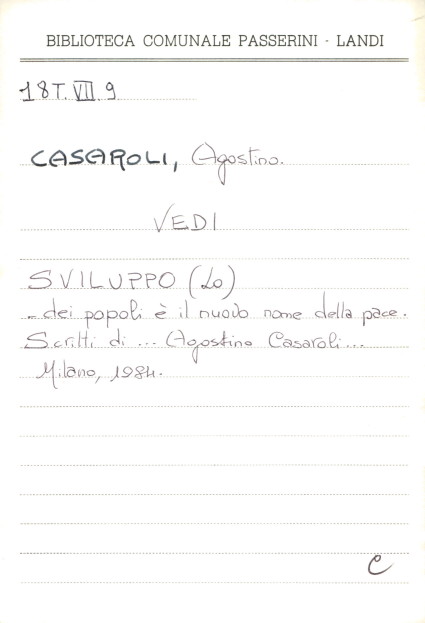 BIBLIOTECA COMUNALE PASSERINI - LANDI
18T.VII.9
CASAROLI, Agostino.
VEDI
SVILUPPO (Lo)
..dei popoli è il nuovo nome della pace.
Scritti di ... Agostino Casaroli...
Milano, 1984.
C